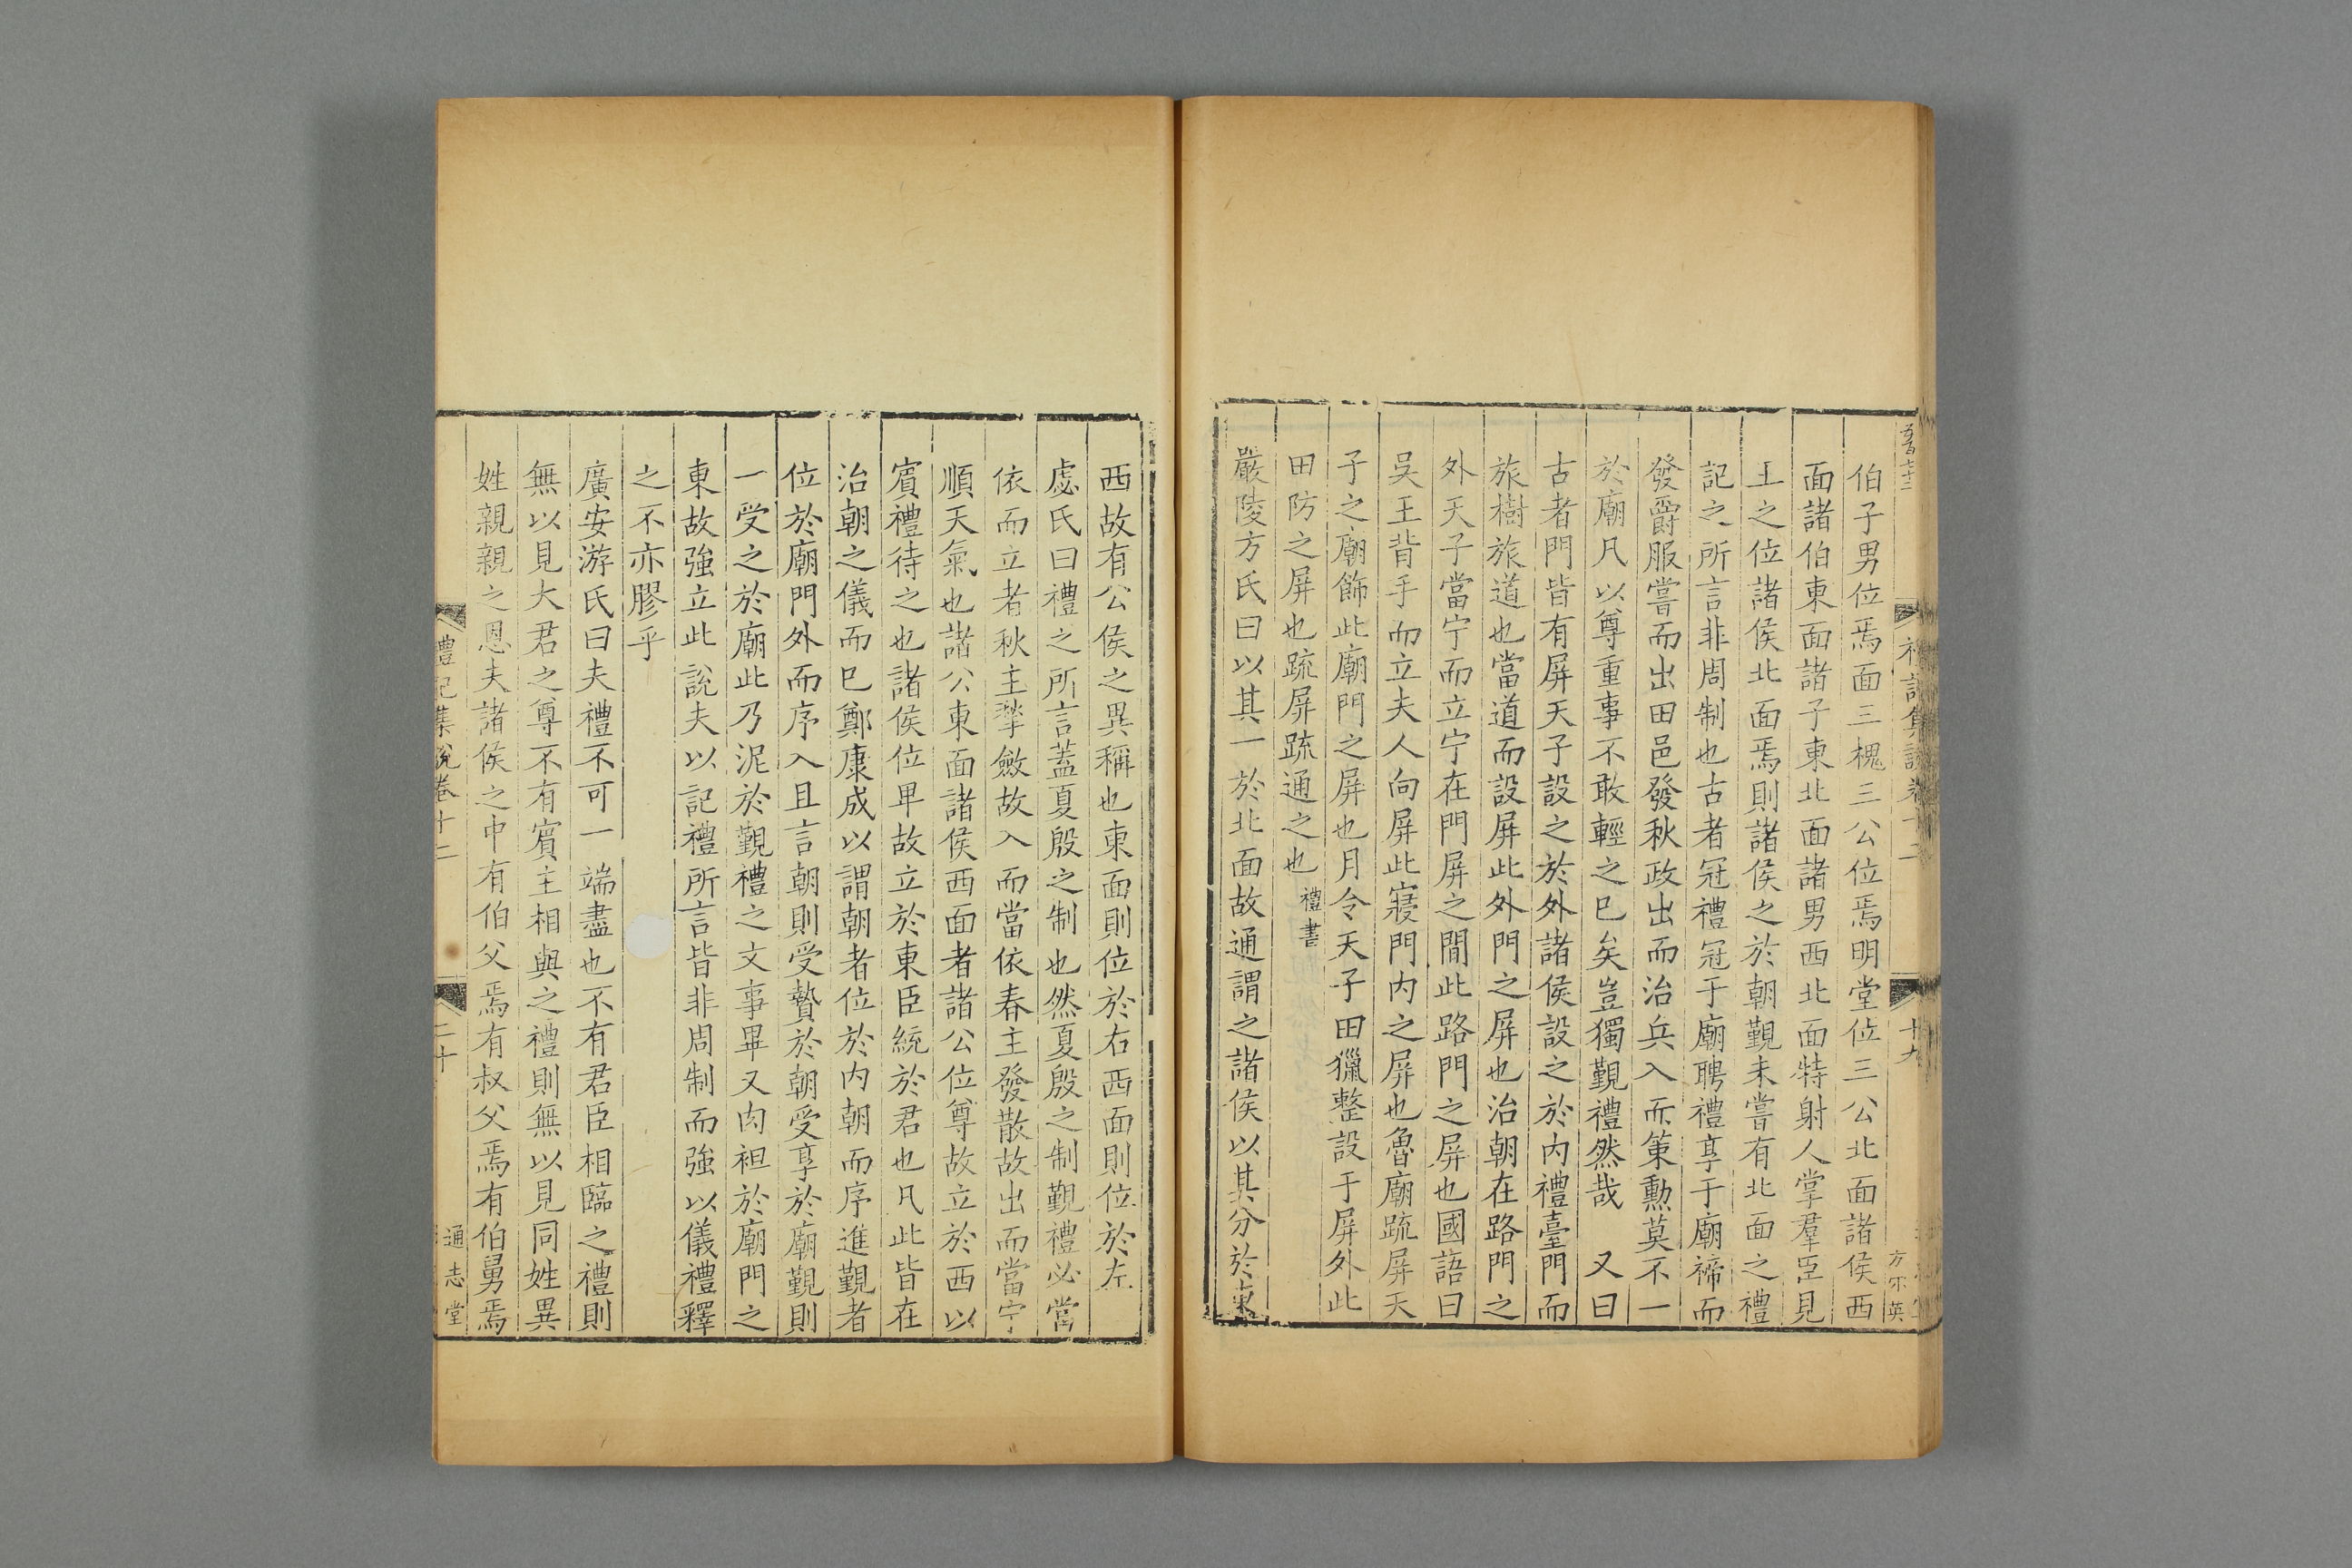 伯子男位焉面三槐三公位焉明堂位三公北面諸侯西
面諸伯東面諸子東北面諸男西北面特射人掌羣臣見
王之位諸侯北面焉則諸侯之於朝覲未嘗有北面之禮
記之所言非周制也古者冠禮冠于廟聘禮享于廟禘而
發爵服嘗而出田邑發秋政出而治兵入而策勲莫不一
於廟凡以尊重事不敢輕之已矣豈獨覲禮然哉 又曰
古者門皆有屏天子設之於外諸侯設之於内禮臺門而
旅樹旅道也當道而設屏此外門之屏也治朝在路門之
外天子當宁而立宁在門屏之間此路門之屏也國語曰
吳王背手而立夫人向屏此寢門内之屏也魯廟疏屏天
子之廟飾此廟門之屏也月令天子田獵整設于屏外此
田防之屏也疏屏疏通之也禮書
嚴陵方氏曰以其一於北面故通謂之諸侯以其分於東
禮記集說卷十二
十九
西故有公侯之異稱也東面則位於右西面則位於左
虙氏曰禮之所言蓋夏殷之制也然夏殷之制覲禮必當
依而立者秋主揫斂故入而當依春主發散故出而當宁
順天氣也諸公東面諸侯西面者諸公位尊故立於西以
賓禮待之也諸侯位卑故立於東臣統於君也凡此皆在
治朝之儀而已鄭康成以謂朝者位於内朝而序進覲者
位於廟門外而序入且言朝則受贄於朝受享於廟覲則
一受之於廟此乃泥於覲禮之文事畢又肉袒於廟門之
東故強立此說夫以記禮所言皆非周制而強以儀禮釋
之不亦膠乎
廣安游氏曰夫禮不可一端盡也不有君臣相臨之禮則
無以見大君之尊不有賓主相與之禮則無以見同姓異
姓親親之恩夫諸侯之中有伯父焉有叔父焉有伯舅焉
禮記集說卷十二
二十
通志堂